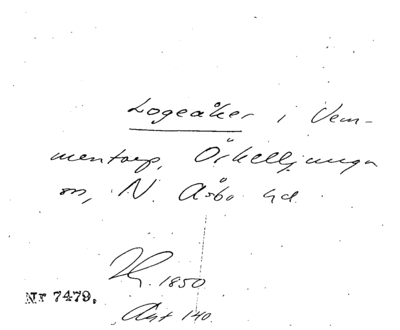 Logeåker i Vem-
mentorp, Örkelljunga
sn, N. Åsbo hd.
1850
Nr 7479.
Akt 140